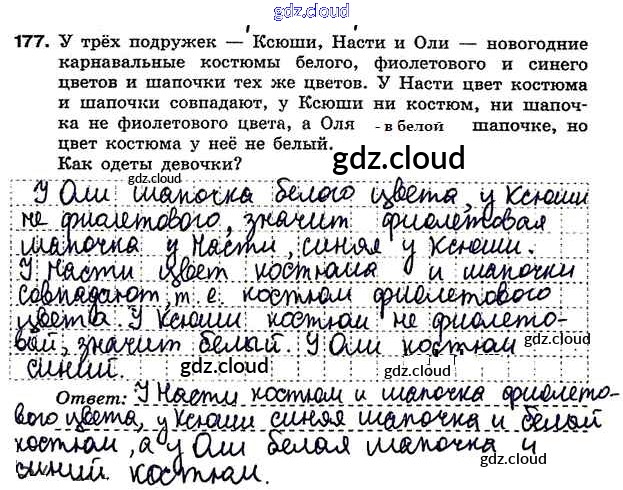 gdz.cloud
177. У трёх подружек — Ксюши, Насти и Оли — новогодние
карнавальные костюмы белого, фиолетового и синего
цветов и шапочки тех же цветов. У Насти цвет костюма
и шапочки совпадают, у Ксюши ни костюм, ни шапоч-
ка не фиолетового цвета, а Оля - в белой шапочке, но
цвет костюма у неё не белый.
Как одеты девочки?
gdz.cloud
gdz.cloud
У Оли шапочка белого цвета, у Ксюши
не фиолетового, значит фиолетовая
шапочка у Насти, синяя у Ксюши.
gdz.cloud
У Насти цвет костюма и шапочки
совпадают, т. е. костюм фиолетового
цвета. У Ксюши костюм не фиолето-
вый, значит белый. У Оли костюм
синий.
gdz.cloud
gdz.cloud
Ответ: У Насти костюм и шапочка фиолето-
вого цвета, у Ксюши синяя шапочка и белый
костюм, а у Оли белая шапочка и
синий костюм.
gdz.cloud
gdz.cloud
gdz.cloud